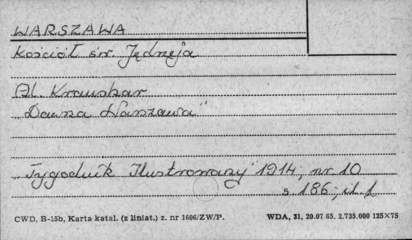 WARSZAWA
Kościół św. Jędrzeja
Al. Kraushar
„Dawna Warszawa"
„Tygodnik Ilustrowany" 1914, nr. 10
s 186, il. 1
CWD, B-15b, Karta katal. (z liniat.) z. nr 1606/ZW/P.
WDA, 31, 29.07 65. 2.735.000 125×75